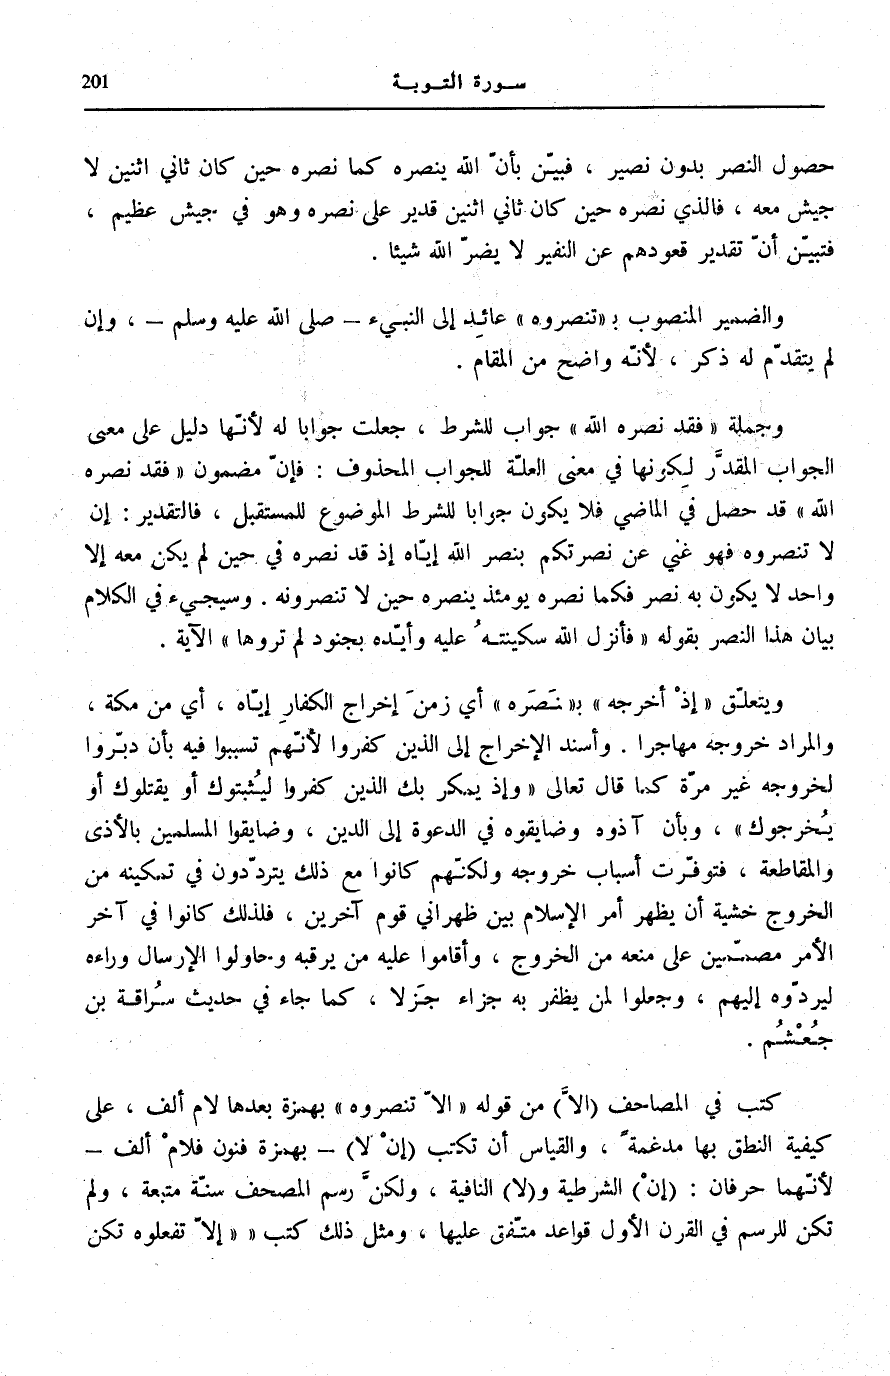 سورة التوبة 201
حصول النصر بدون نصير ، فبيّن بأنّ الله ينصره كما نصره حين كان ثاني اثنين لا
جيش معه ، فالذي نصره حين كان ثاني اثنين قدير على نصره وهو في جيش عظيم ،
فتبيّن أنّ تقدير قعودهم عن النفير لا يضرّ الله شيئا .
والضمير المنصوب بـ«تنصروه» عائد إلى النبيء – صلى الله عليه وسلم – ، وإن
لم يتقدّم له ذكر ، لأنّه واضح من المقام .
وجملة « فقد نصره الله » جواب للشرط ، جعلت جوابا له لأنّها دليل على معنى
الجواب المقدَّر لِكونها في معنى العلّة للجواب المحذوف : فإنّ مضمون « فقد نصره
الله » قد حصل في الماضي فلا يكون جوابا للشرط الموضوع للمستقبل ، فالتقدير : إن
لا تنصروه فهو غني عن نصرتكم بنصر الله إيّاه إذ قد نصره في حين لم يكن معه إلا
واحد لا يكون به نصر فكما نصره يومئذ ينصره حين لا تنصرونه . وسيجيء في الكلام
بيان هذا النصر بقوله « فأنزل الله سكينتهُ عليه وأيّده بجنود لم تروها » الآية .
ويتعلّق « إذْ أخرجه » بـ« نَصَره » أي زمنَ إخراج الكفارِ إيّاه ، أي من مكة ،
والمراد خروجه مهاجرا . وأسند الإخراج إلى الذين كفروا لأنّهم تسببوا فيه بأن دبّروا
لخروجه غير مرّة كما قال تعالى « وإذ يمكر بك الذين كفروا ليُثبتوك أو يقتلوك أو
يُخرجوك » ، وبأن آذوه وضايقوه في الدعوة إلى الدين ، وضايقوا المسلمين بالأذى
والمقاطعة ، فتوفّرت أسباب خروجه ولكنّهم كانوا مع ذلك يتردّدون في تمكينه من
الخروج خشية أن يظهر أمر الإسلام بين ظهراني قوم آخرين ، فلذلك كانوا في آخر
الأمر مصمّمين على منعه من الخروج ، وأقاموا عليه من يرقبه وحاولوا الإرسال وراءه
ليردّوه إليهم ، وجعلوا لمن يظفر به جزاء جَزلا ، كما جاء في حديث سُراقة بن
جُعْشُم .
كتب في المصاحف (إلاَّ) من قوله « الاّ تنصروه » بهمزة بعدها لام ألف ، على
كيفية النطق بها مدغمةً ، والقياس أن تكتب (إنْ لا) – بهمزة فنون فلامْ ألف –
لأنّهما حرفان : (إنْ) الشرطية و(لا) النافية ، ولكنَّ رسم المصحف سنّة متبعة ، ولم
تكن للرسم في القرن الأول قواعد متّفق عليها ، ومثل ذلك كتب « « إلاّ تفعلوه تكن